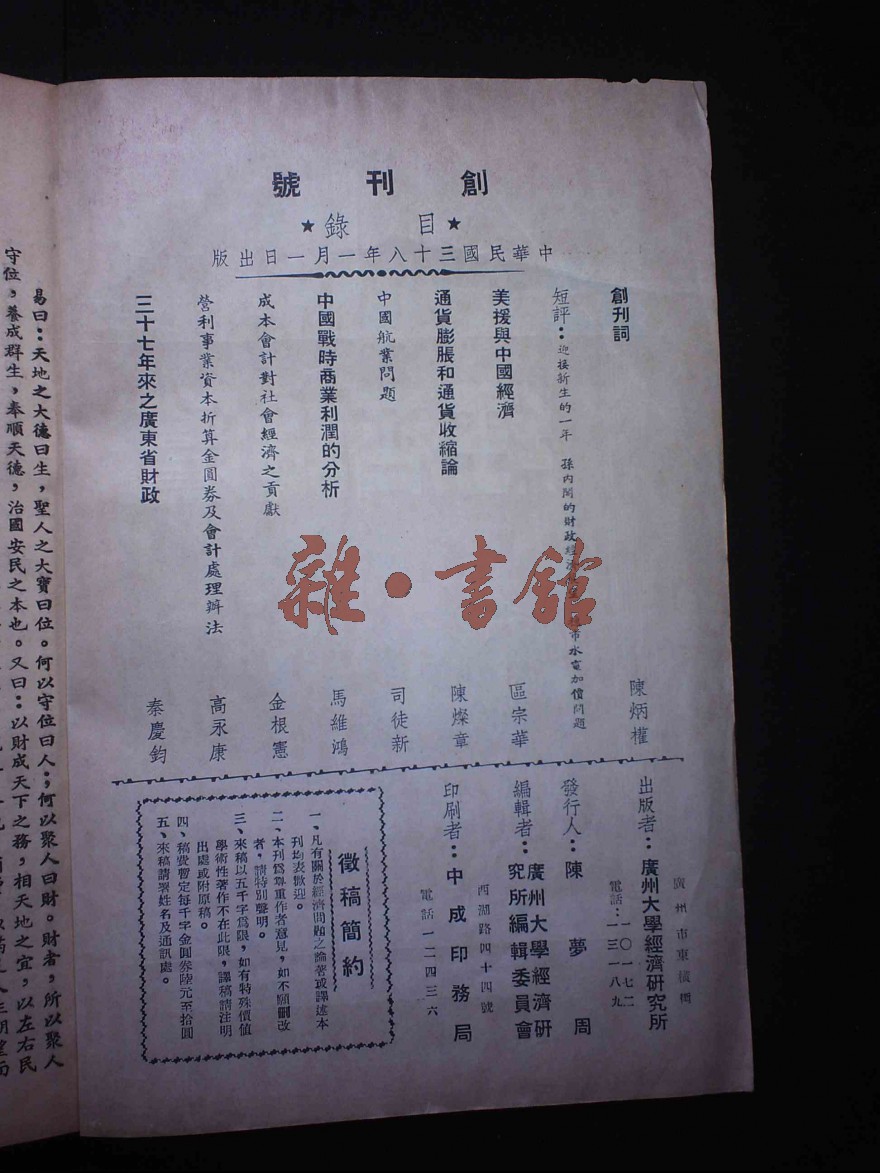 創刊號
★目錄★
中華民國三十八年一月一日出版
創刊詞
陳炳權
短評：迎接新生的一年　孫內閣的財政經
市水電加價問題
美援與中國經濟
區宗華
通貨膨脹和通貨收縮論
陳燦章
中國航業問題
司徒新
中國戰時商業利潤的分析
馬維鴻
成本會計對社會經濟之貢獻
金根憲
營利事業資本折算金圓券及會計處理辦法
高永康
三十七年來之廣東省財政
秦慶鈞
廣州市東橫街
出版者：廣州大學經濟研究所
電話：一〇一七二
一三一八九
發行人：陳夢周
編輯者：廣州大學經濟研
究所編輯委員會
西湖路四十四號
印刷者：中成印務局
電話一二四三六
徵稿簡約
一、凡有關於經濟問題之論著或譯述本
刊均表歡迎。
二、本刊為尊重作者意見，如不願刪改
者，請特別聲明。
三、來稿以五千字為限，如有特殊價值
學術性著作不在此限，譯稿請注明
出處或附原稿。
四、稿費暫定每千字金圓券陸元至拾圓
五、來稿請署姓名及通訊處。
雜·書館
易曰：天地之大德曰生，聖人之大寶曰位。何以守位曰人；何以聚人曰財。財者，所以聚人
守位，養成群生，奉順天德，治國安民之本也。又曰：以財成天下之務，相天地之宜，以左右民